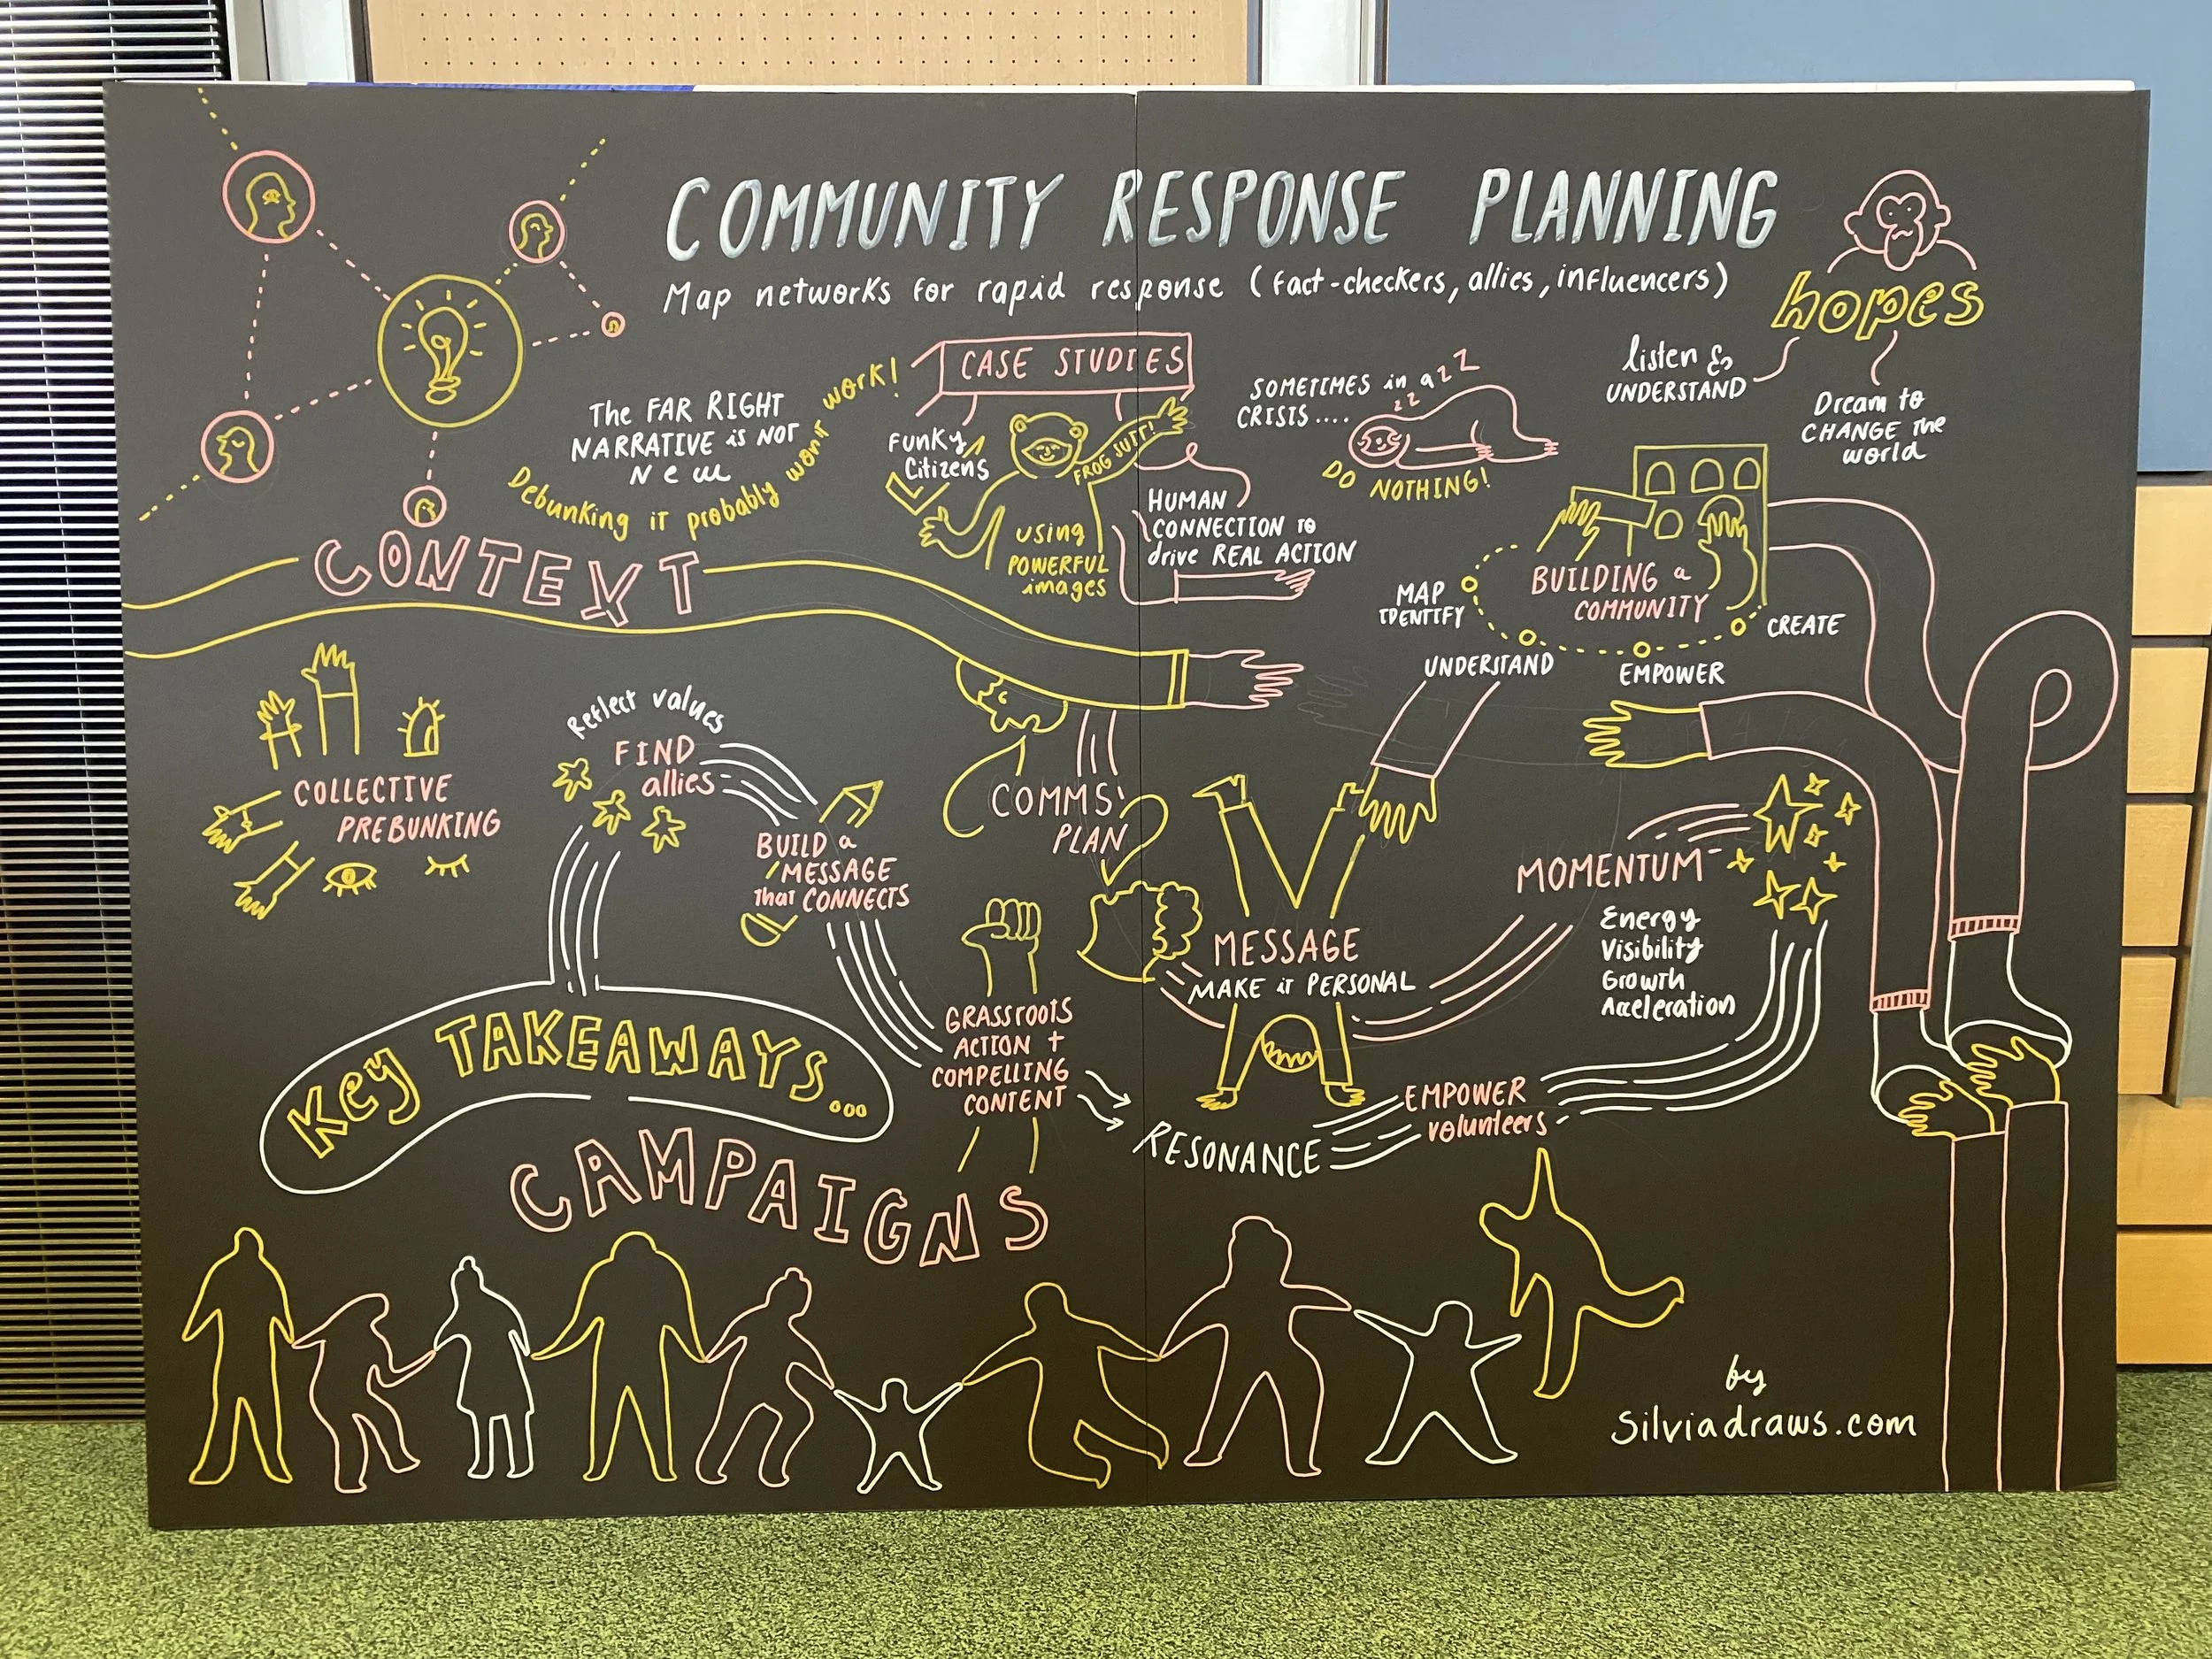 COMMUNITY RESPONSE PLANNING
Map networks for rapid response (fact-checkers, allies, influencers)
hopes
listen &
UNDERSTAND
Dream to
CHANGE the
world
The FAR RIGHT
NARRATIVE is NOT
New
Debunking it probably won't work!
CASE STUDIES
Funky
Citizens
FROG SUIT!
using
POWERFUL
images
HUMAN
CONNECTION to
drive REAL ACTION
SOMETIMES in a
CRISIS....
zzZZ
DO NOTHING!
BUILDING a
COMMUNITY
MAP
IDENTIFY
UNDERSTAND
EMPOWER
CREATE
CONTEXT
COLLECTIVE
PREBUNKING
Reflect values
FIND
allies
BUILD a
MESSAGE
that CONNECTS
COMMS'
PLAN
GRASSROOTS
ACTION +
COMPELLING
CONTENT
MESSAGE
MAKE it PERSONAL
MOMENTUM
Energy
Visibility
Growth
Acceleration
Key TAKEAWAYS...
RESONANCE
EMPOWER
volunteers
CAMPAIGNS
by
Silviadraws.com